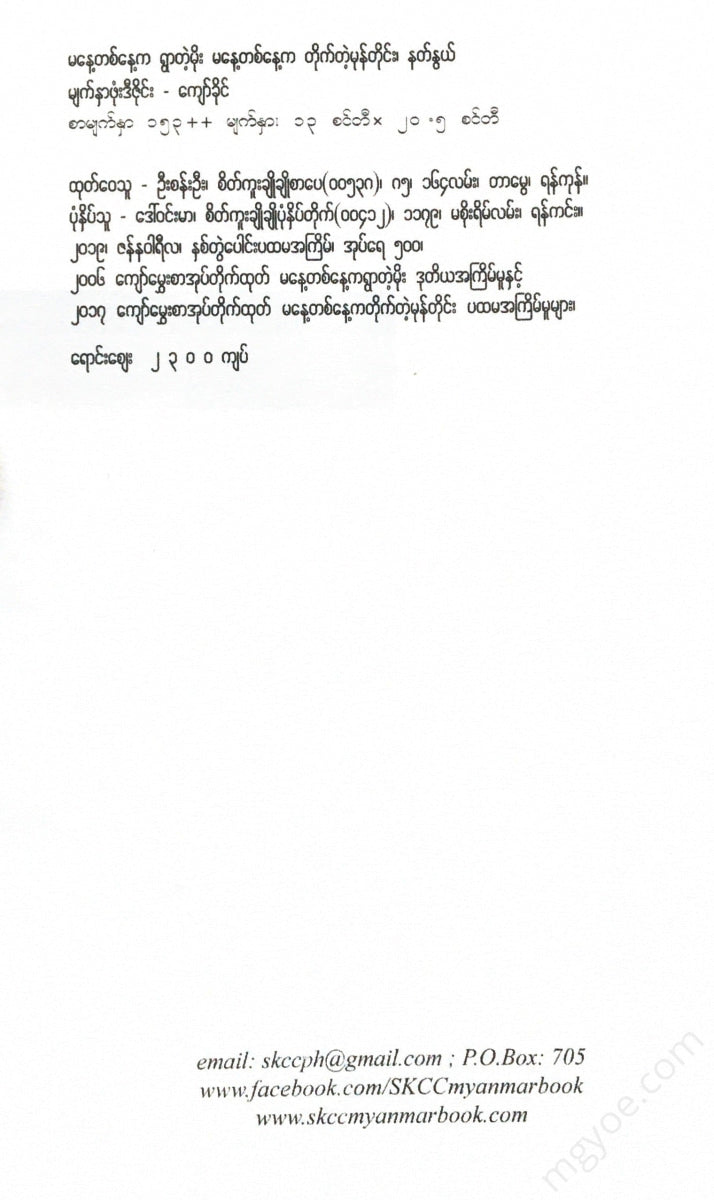 မနေ့တစ်နေ့က ရွာတဲ့မိုး မနေ့တစ်နေ့က တိုက်တဲ့မုန်တိုင်း၊ နတ်နွယ်
မျက်နှာဖုံးဒီဇိုင်း - ကျော်ခိုင်
စာမျက်နှာ ၁၅၃++ မျက်နှား ၁၃ စင်တီ× ၂၀.၅ စင်တီ
ထုတ်ဝေသူ - ဦးစန်းဦး၊ စိတ်ကူးချိုချိုစာပေ(၀၀၅၃၈)၊ ဂ၅၊ ၁၆၄လမ်း၊ တာမွေ၊ ရန်ကုန်။
ပုံနှိပ်သူ - ဒေါ်ဝင်းမာ၊ စိတ်ကူးချိုချိုပုံနှိပ်တိုက်(၀၀၄၁၂)၊ ၁၁၇၉၊ မစိုးရိမ်လမ်း၊ ရန်ကင်း။
၂၀၁၉၊ ဇန်နဝါရီလ၊ နှစ်တွဲပေါင်းပထမအကြိမ်၊ အုပ်ရေ ၅၀၀၊
၂၀၀၆ ကျော်မွှေးစာအုပ်တိုက်ထုတ် မနေ့တစ်နေ့ကရွာတဲ့မိုး ဒုတိယအကြိမ်မူနှင့်
၂၀၁၇ ကျော်မွှေးစာအုပ်တိုက်ထုတ် မနေ့တစ်နေ့ကတိုက်တဲ့မုန်တိုင်း ပထမအကြိမ်မူများ၊
ရောင်းဈေး ၂၃၀၀ကျပ်
email: skccph@gmail.com ; P.O.Box: 705
www.facebook.com/SKCCmyanmarbook
www.skccmyanmarbook.com
mgyoe.com